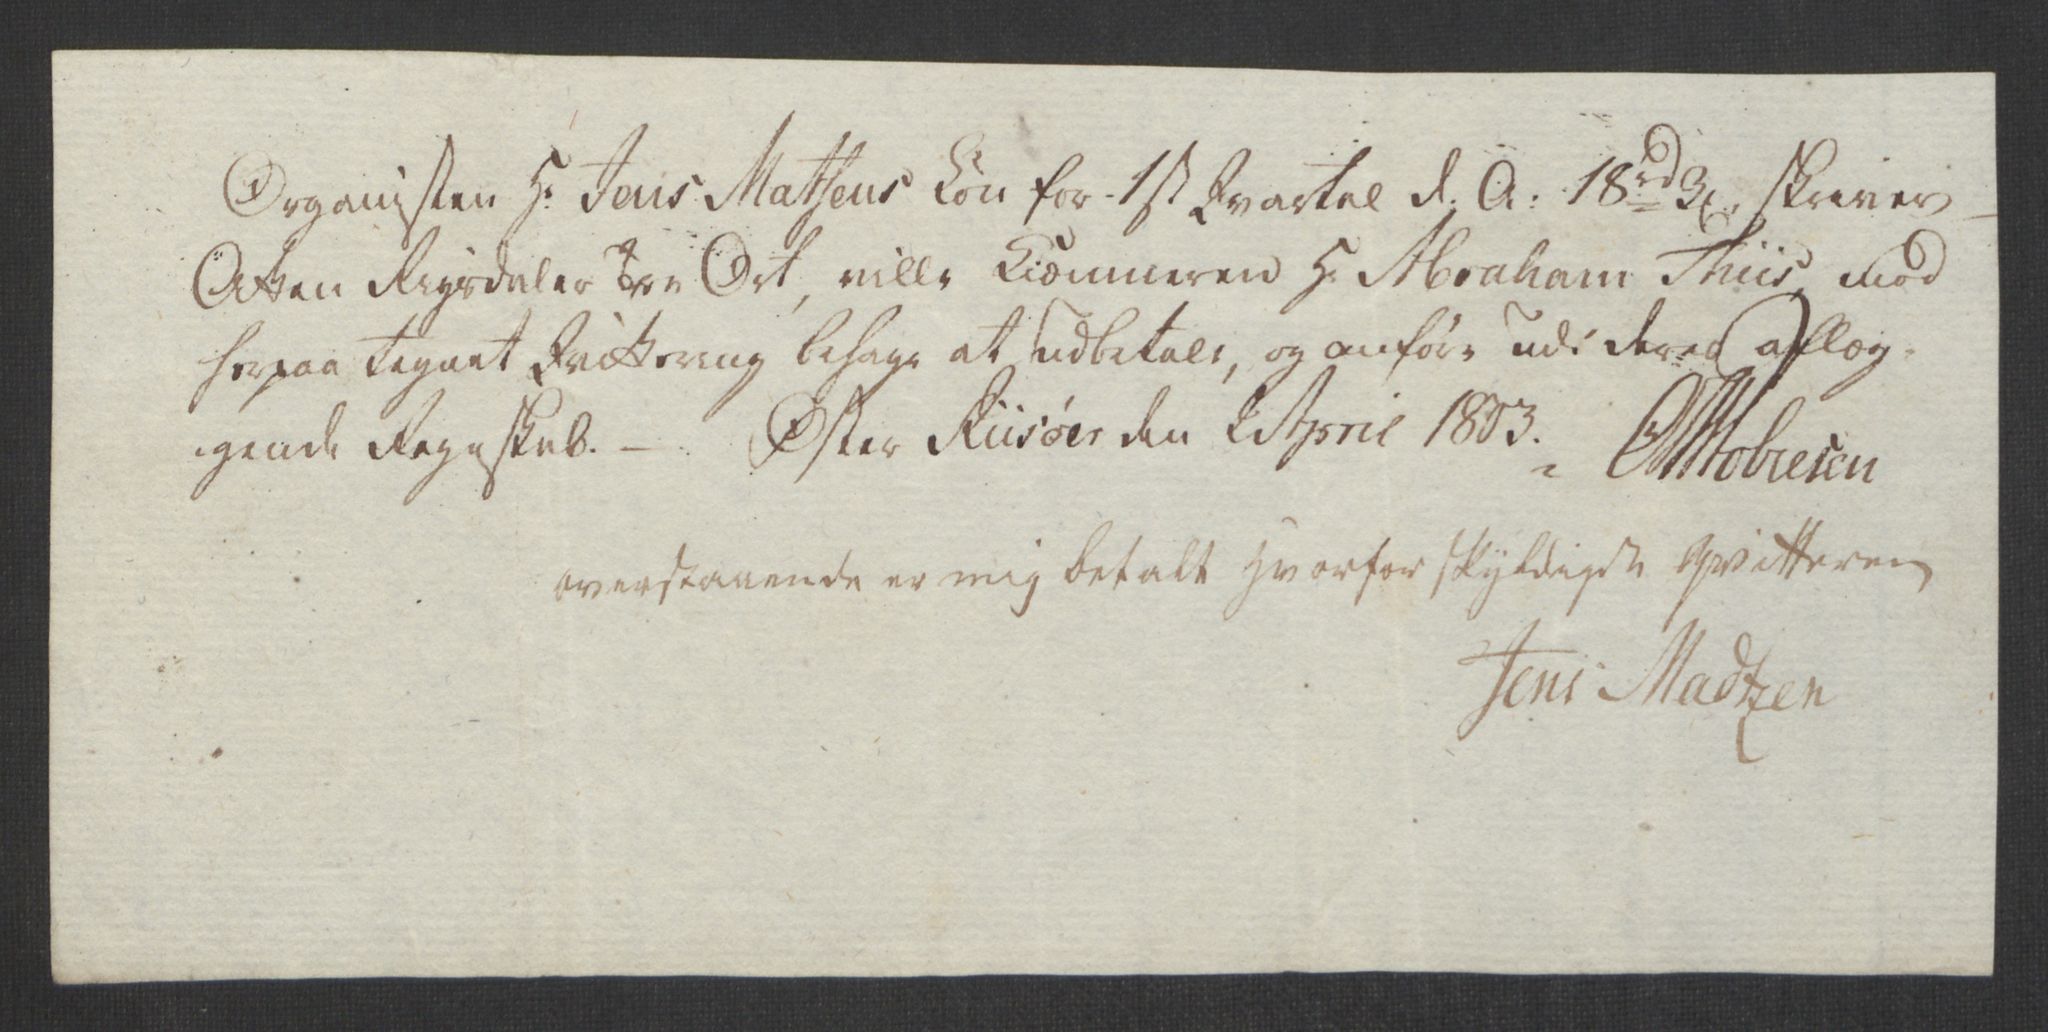 Organisten Hr. Jens Matsens Løn for 1st Qvartal d. A: 18 rd 3 skriver
Atten Rigsdaler Tre Ort, ville Kiæmneren Hr. Abraham Thiis, mod
herpaa tegnet Qvittering behage at udbetale, og anføre udi deres aflæg-
gende Regnskab. — Øster Riisøer den 2 April 1803.
overstaaende er mig betalt hvorfor skyldigst qvitteren
Jens Madtzen